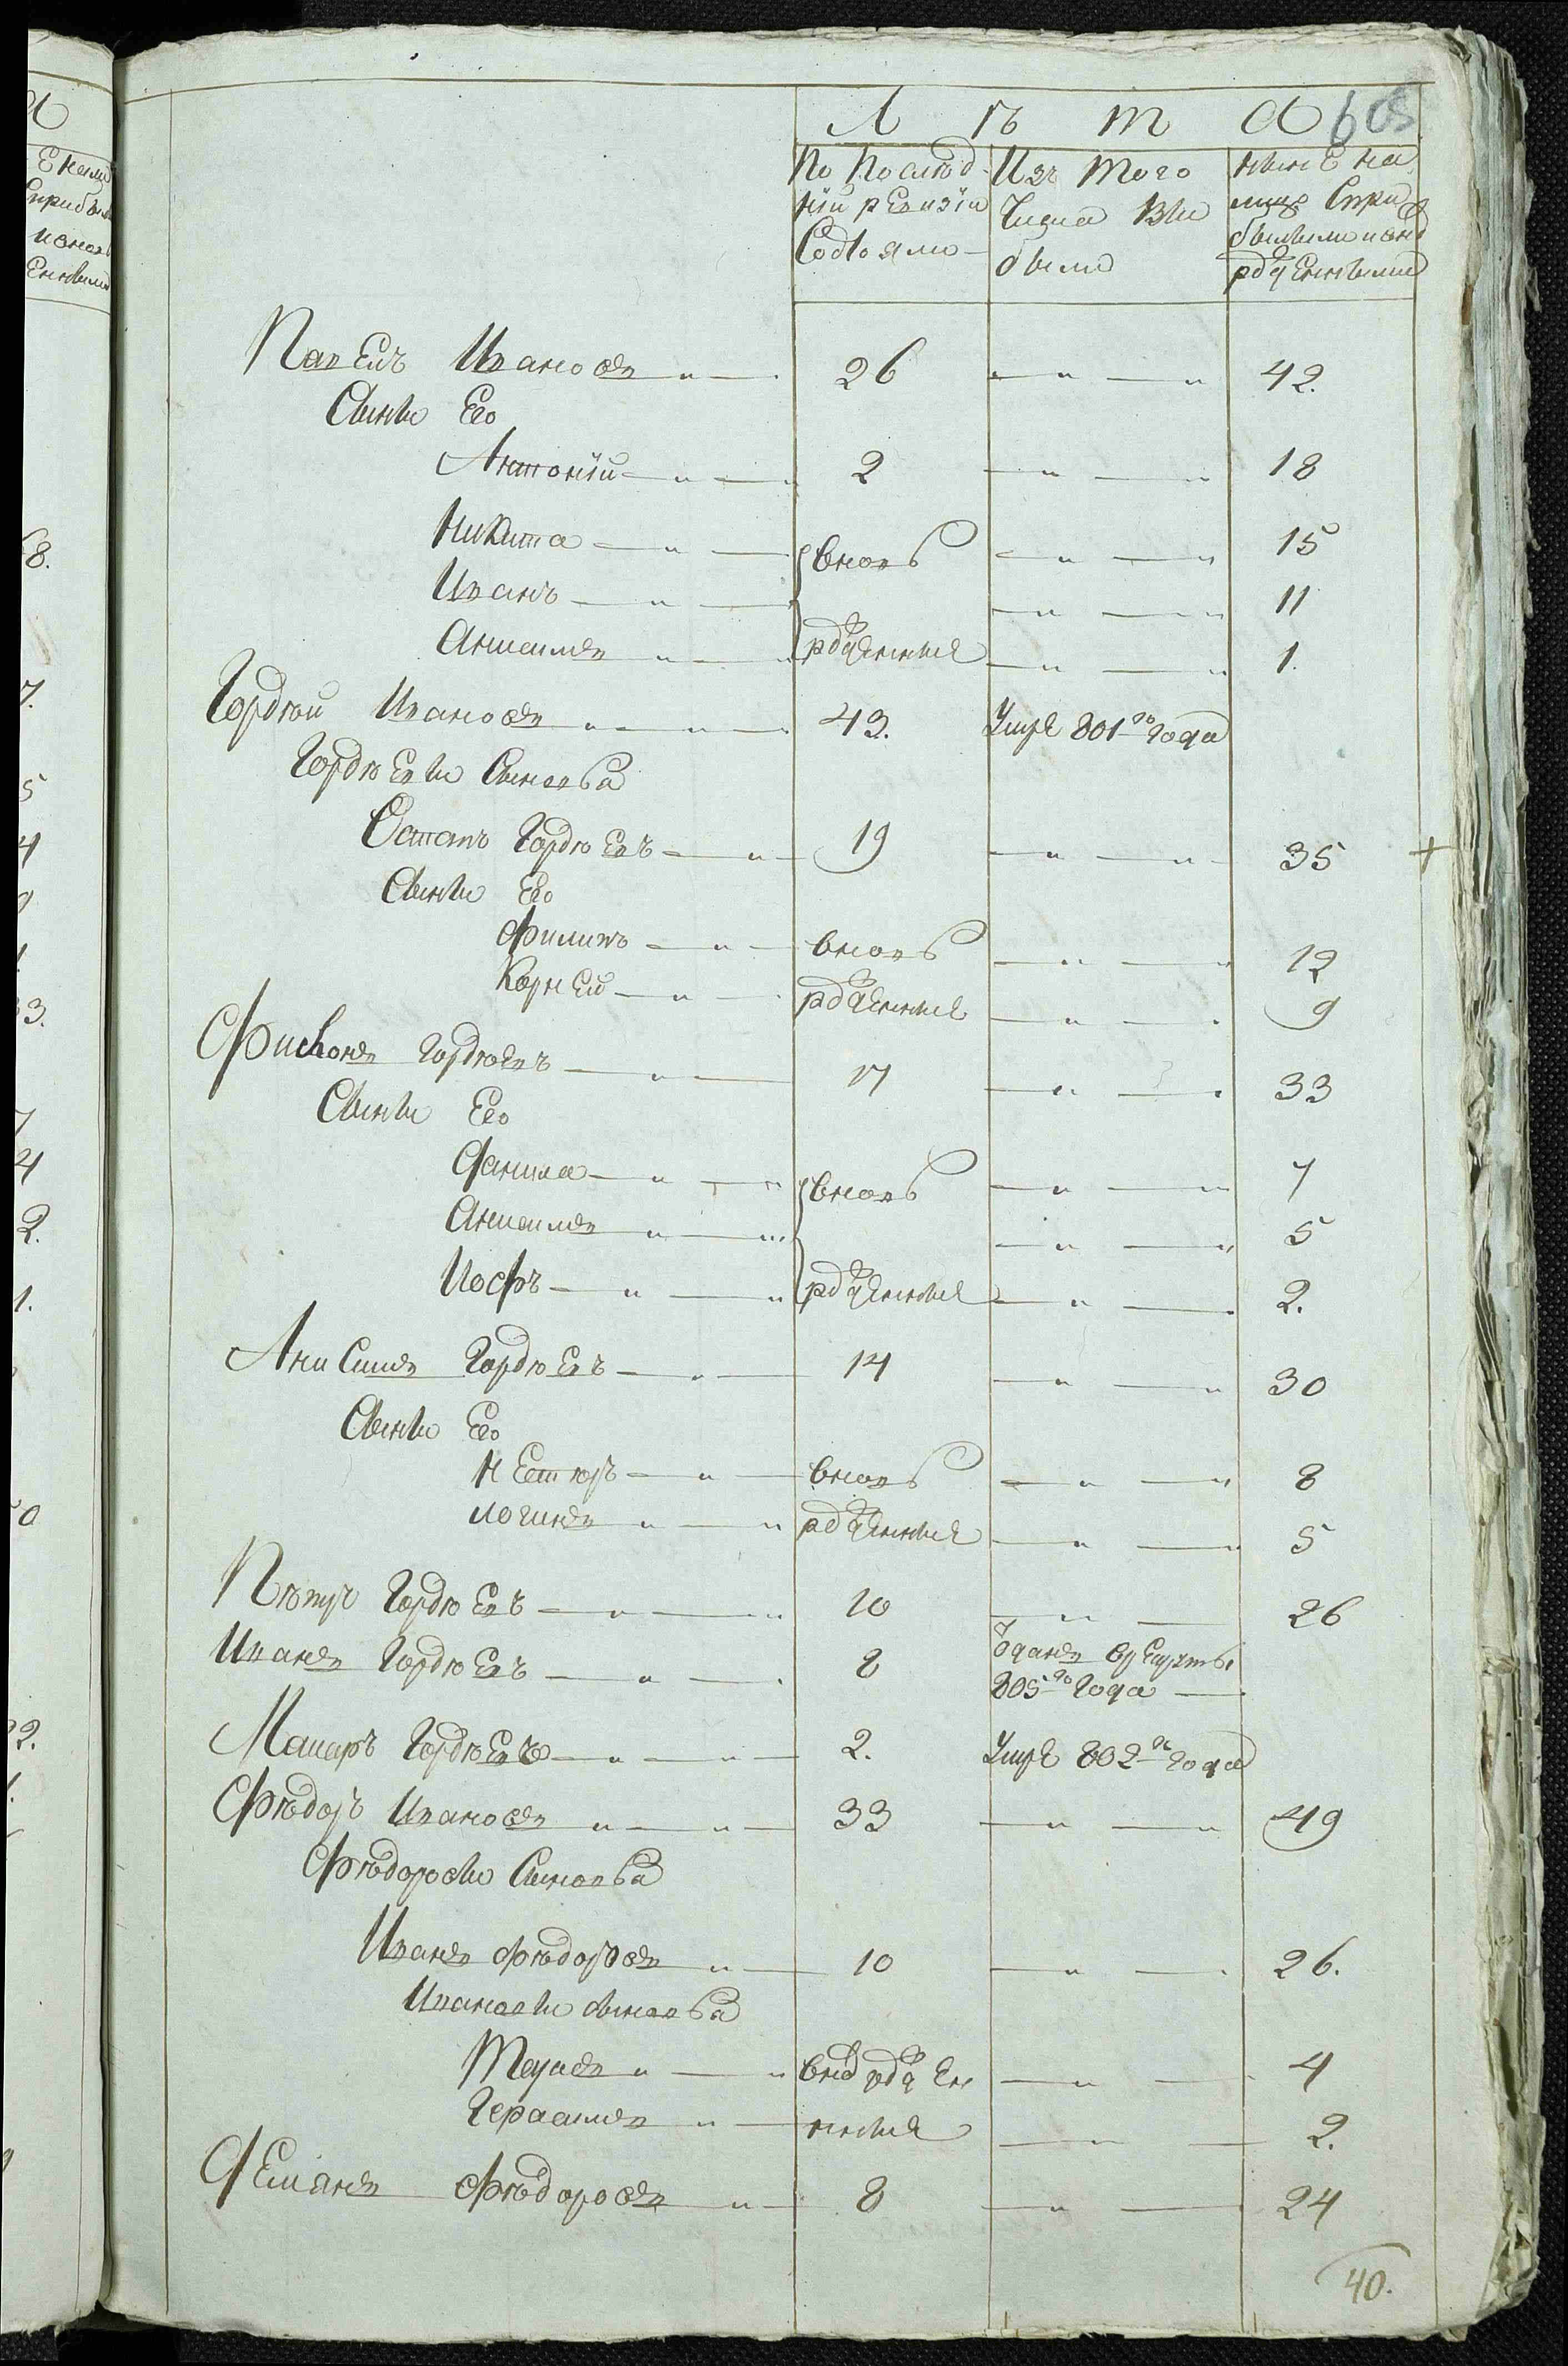 Лѣта 605
По послѣд-
нѣй ревизіи
состояло
Изъ того
числа вы
было
ныне на
лицо спри
былыми и внов
рожденными
Павелъ Ивановъ 26 42.
Сыны Его
Антоній 2 18
Никита вновь 15
Иванъ 11
Анисимъ рожденные 1.
Гордѣй Ивановъ 43. Умре 801го года
Гордѣевы сыновья
Остапъ Гордѣевъ 19 35
Сыны Его
Филипъ вновь 12
Корней рожденные 9
Фисконъ Гордѣевъ 17 33
Сыны Его
Данила вновь 7
Анисимъ 5
Иосфъ рожденные 2.
Анисимъ Гордѣевъ 14 30
Сыны Его
Нестюръ вновь 8
Логинъ рожденные 5
Пѣтръ Гордѣевъ 10 26
Иванъ Гордѣевъ 8 Отданъ врекруты
805го года
Макаръ Гордѣевъ 2. Умре 802го года
Фѣдоръ Ивановъ 33 49
Фѣдоровы сыновья
Иванъ Фѣдоровъ 10 26.
Ивановы сыновья
внов рожден 4
Герасимъ ные 2.
Демянъ Фѣдоровъ 8 24
40.